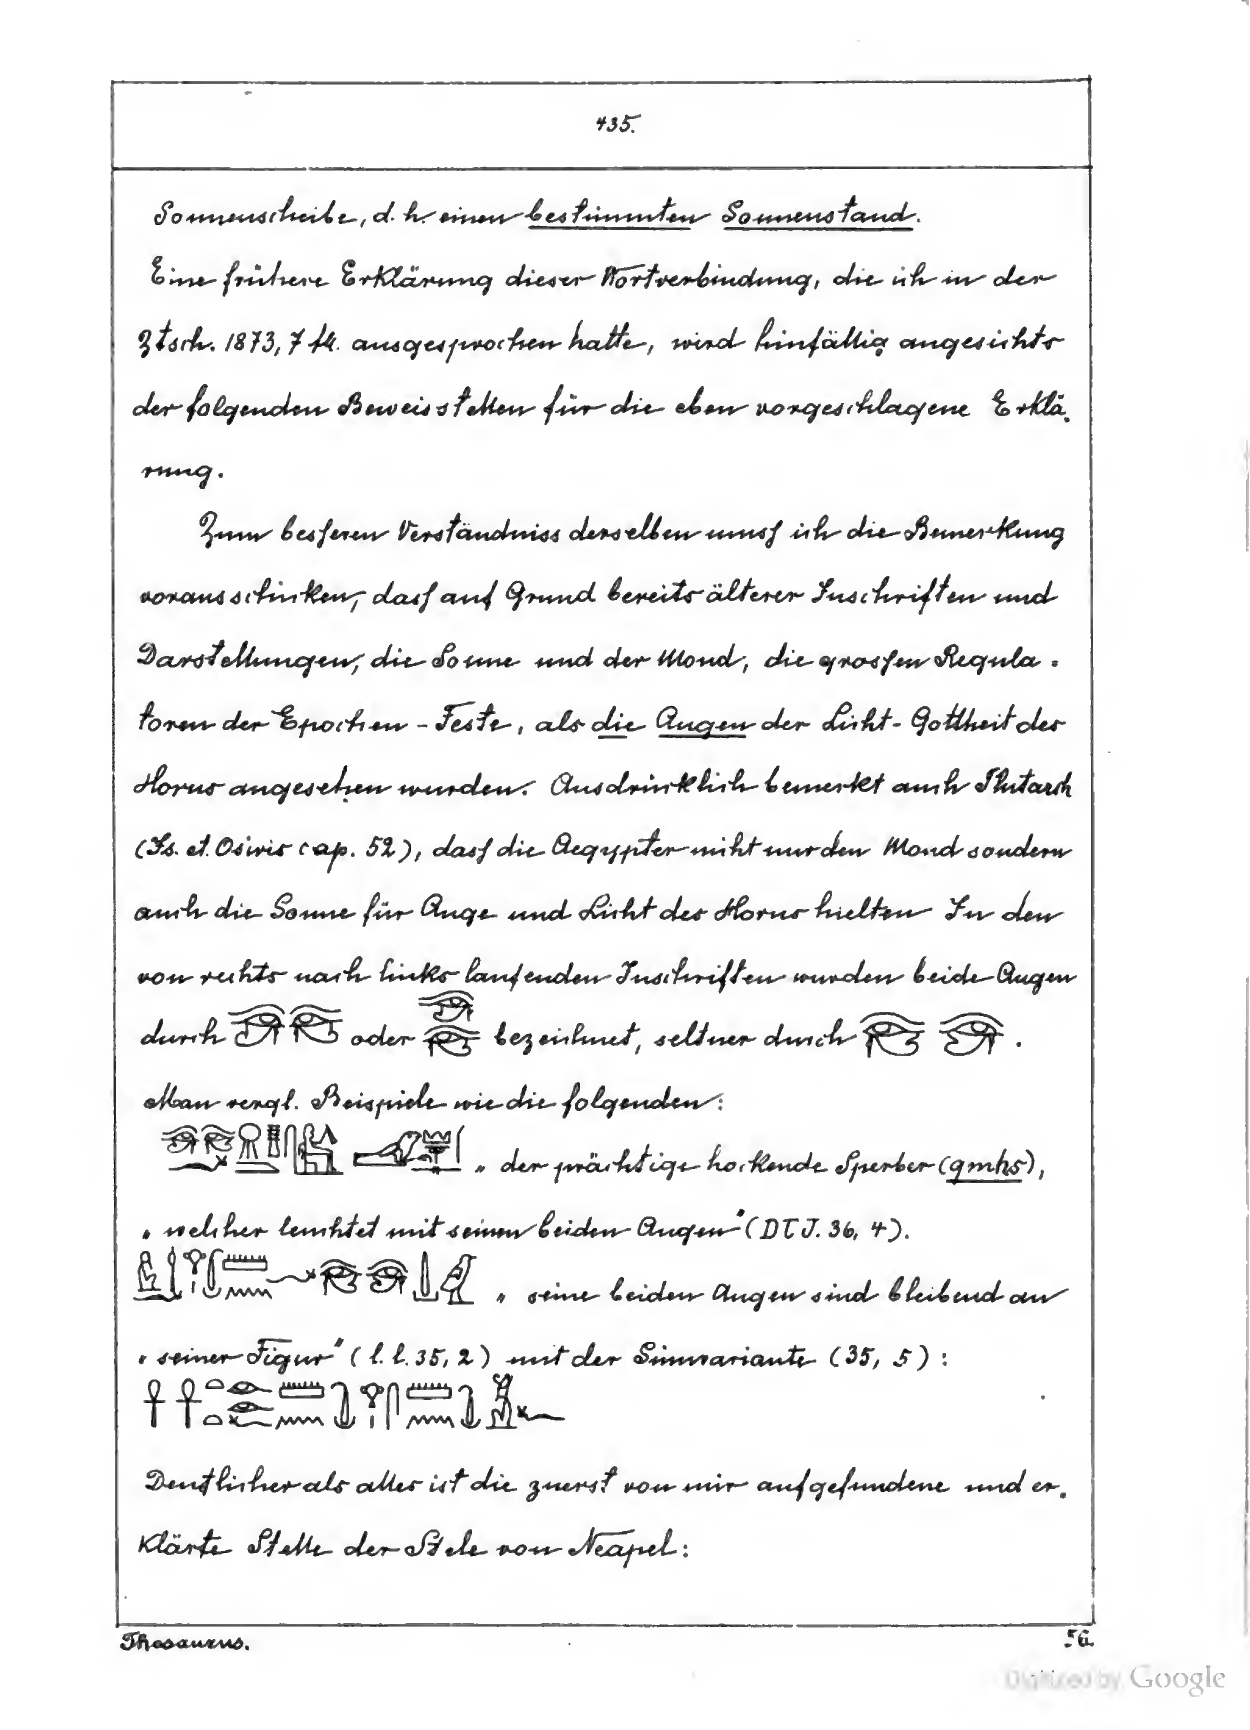 435.
Sonnenscheibe, d. h. einen bestimmten Sonnenstand.
Eine frühere Erklärung dieser Wortverbindung, die ich in der
Ztsch. 1873, 7 fll. ausgesprochen hatte, wird hinfällig angesichts
der folgenden Beweisstellen für die eben vorgeschlagene Erklä-
rung.
Zum besseren Verständniss derselben muss ich die Bemerkung
vorausschicken, dass auf Grund bereits älterer Inschriften und
Darstellungen, die Sonne und der Mond, die grossen Regula-
toren der Epochen-Feste, als die Augen der Licht-Gottheit des
Horus angesehen wurden. Ausdrücklich bemerkt auch Plutarch
(Is. et. Osiris cap. 52), dass die Aegypter nicht nur den Mond sondern
auch die Sonne für Auge und Licht des Horus hielten In den
von rechts nach links laufenden Inschriften wurden beide Augen
durch 𓂀𓂀 oder 𓂀𓂀 bezeichnet, seltner durch 𓂀 𓂀.
Man vergl. Beispiele wie die folgenden:
„der prächtige hockende Sperber (qmhs),
„welcher leuchtet mit seinen beiden Augen" (DTJ. 36, 4).
„seine beiden Augen sind bleibend an
„seiner Figur" (l. l. 35, 2) mit der Sinnvariante (35, 5):
Deutlicher als alles ist die zuerst von mir aufgefundene und er-
klärte Stelle der Stele von Neapel:
Thesaurus.
56.
Digitized by Google